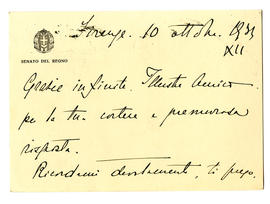 Firenze. 10 ottobre 1933
XII
SENATO DEL REGNO
Grazie infinite. Illustre Amico
per la tua cortese e premurosa
risposta.
Ricordami devotamente, ti prego.